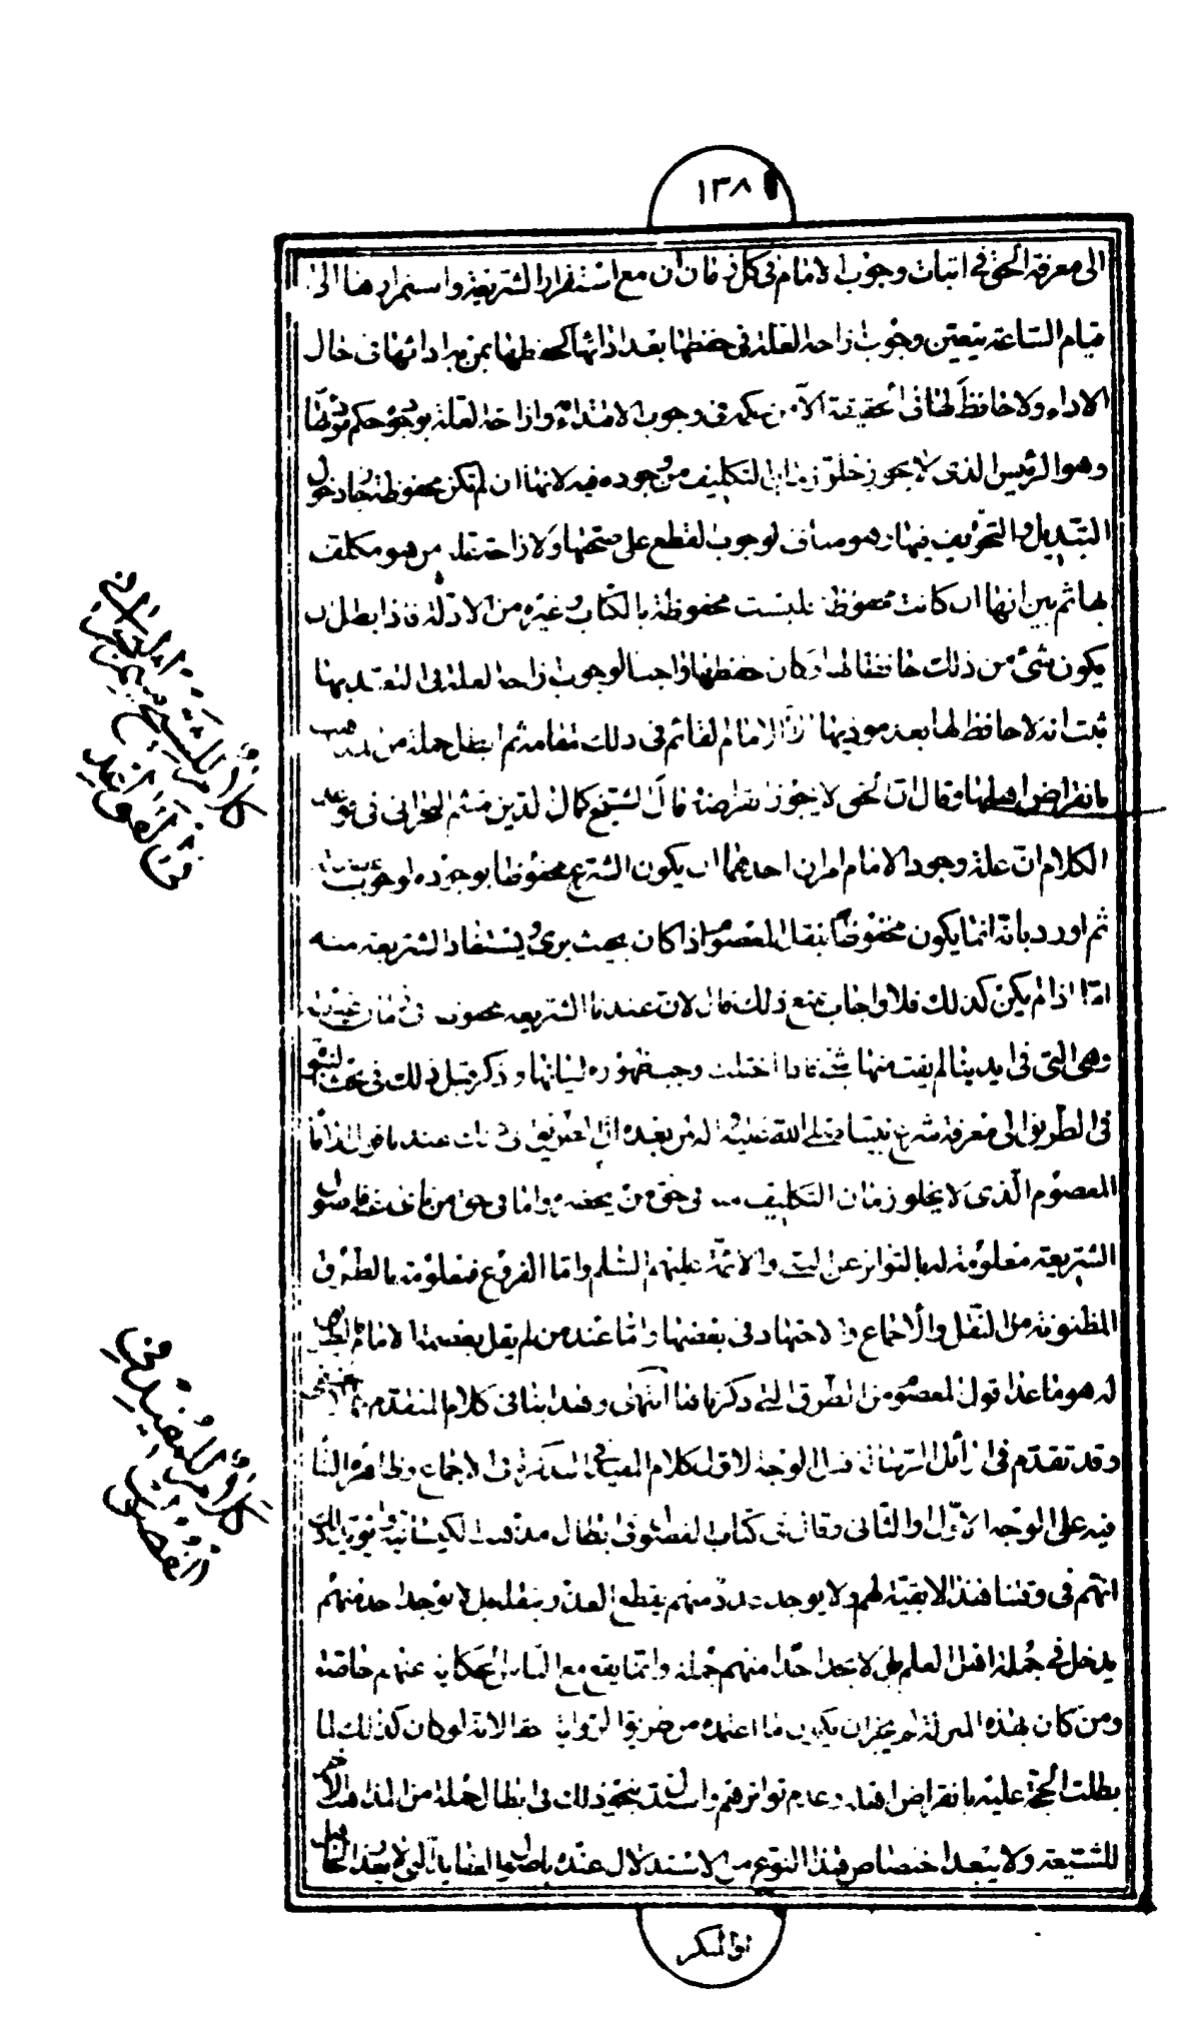 ١٣٨
الى معرفة الحق في اثبات وجوب الامام في كل زمان ان مع استقرار الشريعة واستمرارها الى
قيام الساعة يتعين وجوب ازاحة العلة في حفظها بعد ادائها كحفظها بمن ادائها في حال
الاداء ولا حافظ لها في الحقيقة الا من في وجوب الاقتداء وازاحة العلة بوجوده حكم
وهو الرئيس الذي لا يجوز خلو زمان التكليف من وجوده فيه لانها ان لم تكن محفوظة جاز دخول
التبديل والتحريف فيها وهو مناف لوجوب القطع على صحتها ولازاحة علة من هو مكلف
بها ثم بين انها ان كانت محفوظة فليست محفوظة بالكتاب وغيره من الادلة فاذا بطل ان
يكون شئ من ذلك حافظا لها وكان حفظها واجبا لوجوب ازاحة العلة في التعبد بها
ثبت انه لا حافظ لها بعد مؤديها الا الامام القائم في ذلك مقامه ثم ابطل جملة من المذاهب
بانقراض اهلها وقال ان الحق لا يجوز انقراضه قال الشيخ كمال الدين ميثم البحراني في قواعد
الكلام ان علة وجود الامام امران احدهما ان يكون الشرع محفوظا بوجوده لوجوب
ثم اورد بانه انما يكون محفوظا بنقل المعصوم اذا كان بحيث يرى ويستفاد الشريعة منه
امّا اذا لم يكن كذلك فلا واجاب بمنع ذلك قال لان عندنا الشريعة محفوظة في زمان غيبته
وهي التي في ايدينا لم يفت منها شئ فاذا اختلت وجب ظهوره لبيانها وذكر قبل ذلك في بحث النبوة
في الطريق الى معرفة شرع نبينا صلى الله عليه واله من بعده ان الطريق في ذلك عندنا قول الامام
المعصوم الّذي لا يخلو زمان التكليف منه في حق من يحضره واما في حق من غاب عنه فاصول
الشريعة معلومة له بالتواتر عن النبي والائمّة عليهم السّلم وامّا الفروع فمعلومة بالطرق
المظنونة من النّقل والاجماع والاجتهاد في بعضها وامّا عند من لم يقل بعصمة الامام
له هو ما عدا قول المعصوم من الطرق التي ذكرناها انتهى وقد
وقد تقدم في اوائل في الوجه الاول كلام المفيد في في الاجماع وظاهره البناء
فيه على الوجه الاوّل والثاني وقال في كتاب الفصول في ابطال مذهب الكيسانية
انّهم في وقتنا هذا لا بقيّة لهم ولا يوجد عدد منهم يقطع العذر بنقله بل لا يوجد احد منهم
يدخل في جملة اهل العلم بل لا نجد احدا منهم جملة وانّما يقع مع الناس الحكاية عنهم خاصّة
ومن كان بهذه المنزلة لم يجز ان يكون ما اعتمده من طريق الرواية حقا لانه لو كان كذلك لما
بطلت الحجّة عليه بانقراض اهله وعدم تواترهم واستدل بنحو ذلك في ابطال جملة من المذاهب
للشيعة ولا يبعد اختصاص هذا النوع من الاستدلال عنده باصول العقايد التي لا يعذر
كلام الشيخ ميثم البحراني
في القواعد
كلام المفيد في
الفصول